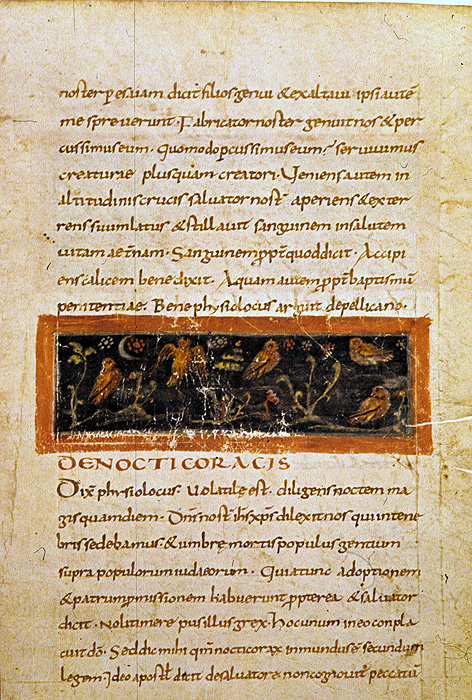 noster p esaiam dicit filios genui & exaltavi ipsi autē
me spreverunt · Fabricator noster genuit nos & per
cussimus eum · Quomodo pcussimus eum · servivimus
creaturae plus quam creatori · Veniens autem in
altitudinis crucis salvator nost̄ aperiens & exter
rens suum latus & stillavit sanguinem in salutem
vitam aet̄nam · Sanguinem pp̄t quod dicit · Accipi
ens calicem benedixit · Aquam autem pp̄t baptismū
penitentiae · Bene physiolocus arguit de pellicano ·
DE NOCTICORACIS
Dix̄ physiolocus · volatile est · diligens noctem ma
gis quam diem · Dn̄s nost̄ ih̄s xp̄s dilexit nos qui in tene
bris sedebamus · & umbrę mortis populus gentium
supra populorum iudaeorum · Qui a tunc adoptionem
& patrum pmissionem habuerunt ppterea & salvator
dicit · Noli timere pusillus grex · Hoc unum in eo conpla
cuit dō · Sed dic mihi qm̄ nocticorax inmundus ē secundum
legem · Ideo apost̄l dicit de salvatore non cognovit peccatū